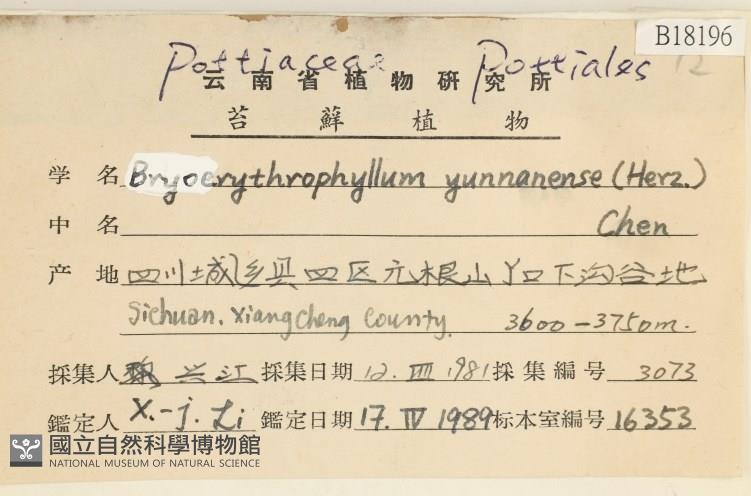 B18196
Pottiaceae Pottiales 12
云南省植物研究所
苔蘚植物
学名 Bryoerythrophyllum yunnanense (Herz.)
中名 Chen
产地 四川 城乡县四区元根山丫口下沟谷地
Sichuan. Xiangcheng County. 3600-3750m.
採集人 兴江 採集日期 12. III 1981 採集編号 3073
鑑定人 X.-j. Li 鑑定日期 17. IV 1989 标本室編号 16353
國立自然科學博物館
NATIONAL MUSEUM OF NATURAL SCIENCE